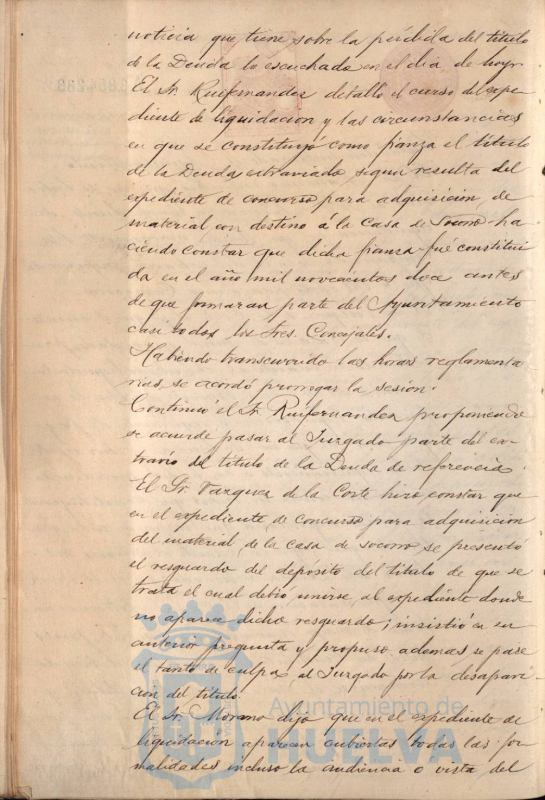 noticia que tiene sobre la pérdida del título
de la Deuda lo escuchado en el día de hoy.
El Sr. Ruifernandez detalló el curso del expe-
diente de liquidacion y las circunstancias
en que se constituyó como fianza el título
de la Deuda extraviado segun resulta del
expediente de concurso para adquisicion de
material con destino á la Casa de Socorro ha-
ciendo constar que dicha fianza fué constitui
da en el año mil novecientos doce antes
de que formaran parte del Ayuntamiento
casi todos los Sres. Concejales.
Habiendo transcurrido las horas reglamenta
rias se acordó prorrogar la sesión.
Continuó el Sr. Ruifernandez proponiendo
se acuerde pasar al Juzgado parte del ex-
travío del título de la Deuda de referencia.
El Sr. Vazquez de la Corte hizo constar que
en el expediente de concurso para adquisicion
del material de la casa de socorro se presentó
el resguardo del depósito del título de que se
trata el cual debió unirse al expediente donde
no aparece dicho resguardo; insistió en su
anterior pregunta y propuso ademas se pase
el tanto de culpa al Juzgado por la desapari-
cion del título.
El Sr. Moreno dijo que en el expediente de
liquidación aparecen cubiertas todas las for
malidades incluso la audiencia o vista del
Ayuntamiento de
HUELVA